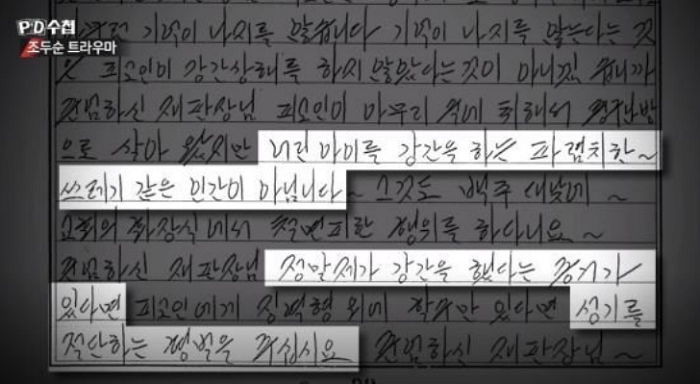 PD수첩
조두순 트라우마
기억이 나지를 않습니다 기억이 나지를 않는다는 것
은 피고인이 강간상해를 하지 않았다는것이 아니겠습니까
존경하신 재판장님 피고인이 아무리 술에 취해서
으로 살아 왔지만 어린 아이를 강간을 하는 파렴치한~
쓰레기 같은 인간이 아닙니다~ 그것도 백주 대낮에~
교회의 화장실에서 철면피한 행위를 하다니요~
존경하신 재판장님 정말제가 강간을 했다는 증거가
있다면 피고인에게 징역형 외에 할수만 있다면 성기를
절단하는 형벌을 주십시요 존경하신 재판장님~